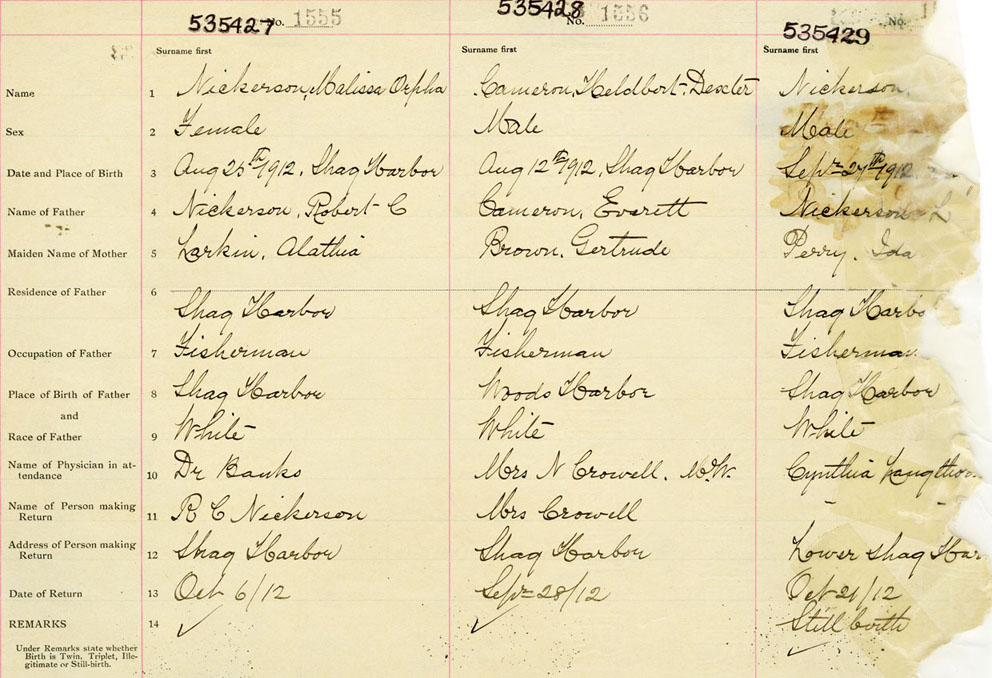 535427 No. 1555 535428 No. 1556 535429 No.
Surname first Surname first Surname first
Name 1 Nickerson, Malissa Orpha Cameron, Heldbert-Dexter Nickerson,
Sex 2 Female Male Male
Date and Place of Birth 3 Aug 25th 1912, Shag Harbor Aug 12th 1912, Shag Harbor Sept 27th 1912,
Name of Father 4 Nickerson, Robert C Cameron, Everett Nickerson L
Maiden Name of Mother 5 Larkin, Alathia Brown, Gertrude Perry, Ida
Residence of Father 6 Shag Harbor Shag Harbor Shag Harbo
Occupation of Father 7 Fisherman Fisherman Fisherman
Place of Birth of Father 8 Shag Harbor Woods Harbor Shag Harbor
and
Race of Father 9 White White White
Name of Physician in at-
tendance 10 Dr Banks Mrs N Crowell, M.W. Cynthia
Name of Person making
Return 11 R C Nickerson Mrs Crowell
Address of Person making
Return 12 Shag Harbor Shag Harbor Lower Shag Har
Date of Return 13 Oct 6/12 Sept 28/12 Oct 21/12
REMARKS 14 ✓ ✓ Still birth
Under Remarks state whether
Birth is Twin, Triplet, Ille-
gitimate or Still-birth.